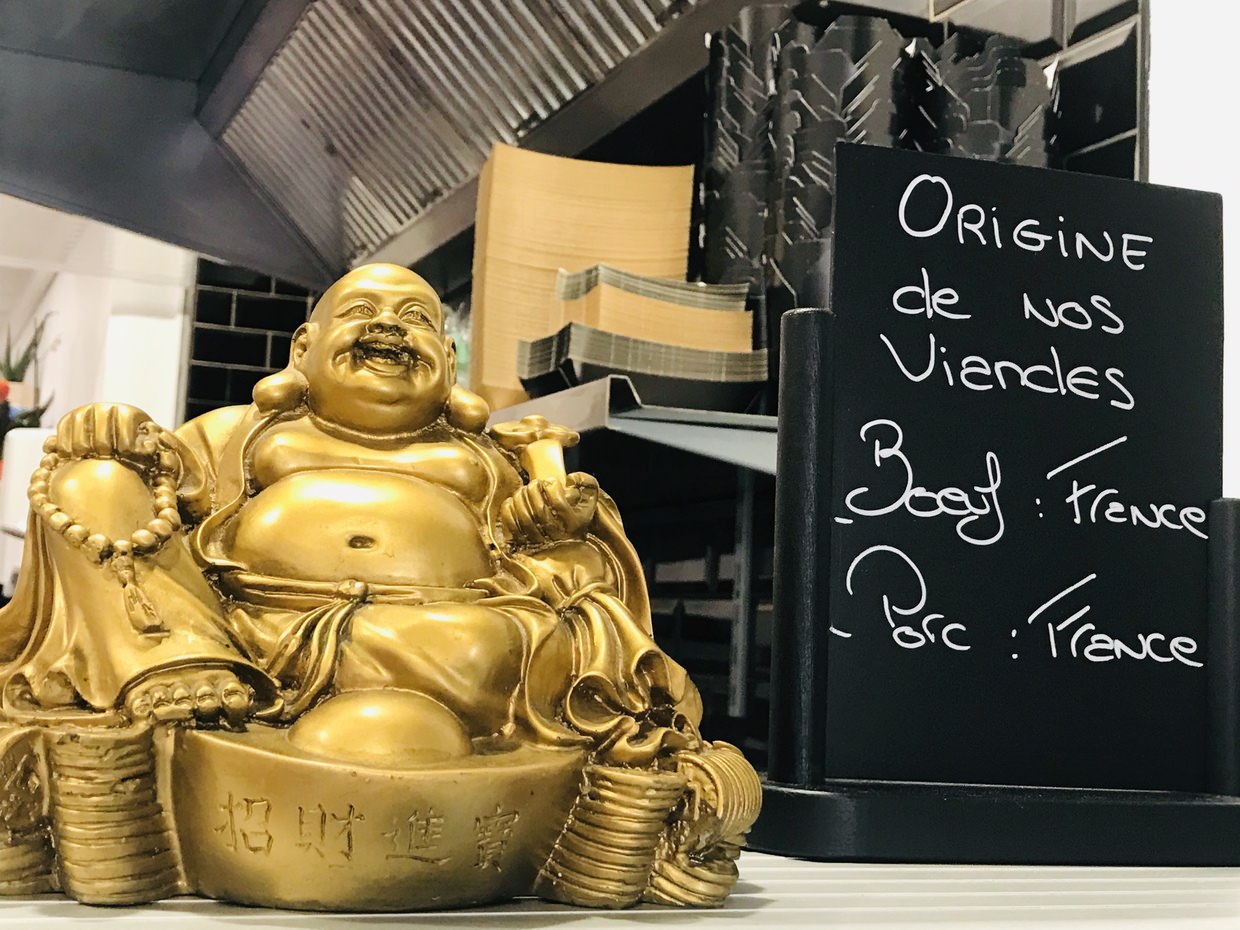 ORIGINE
de NOS
ViandES
- Boeuf : France
- Porc : France
招財進寶